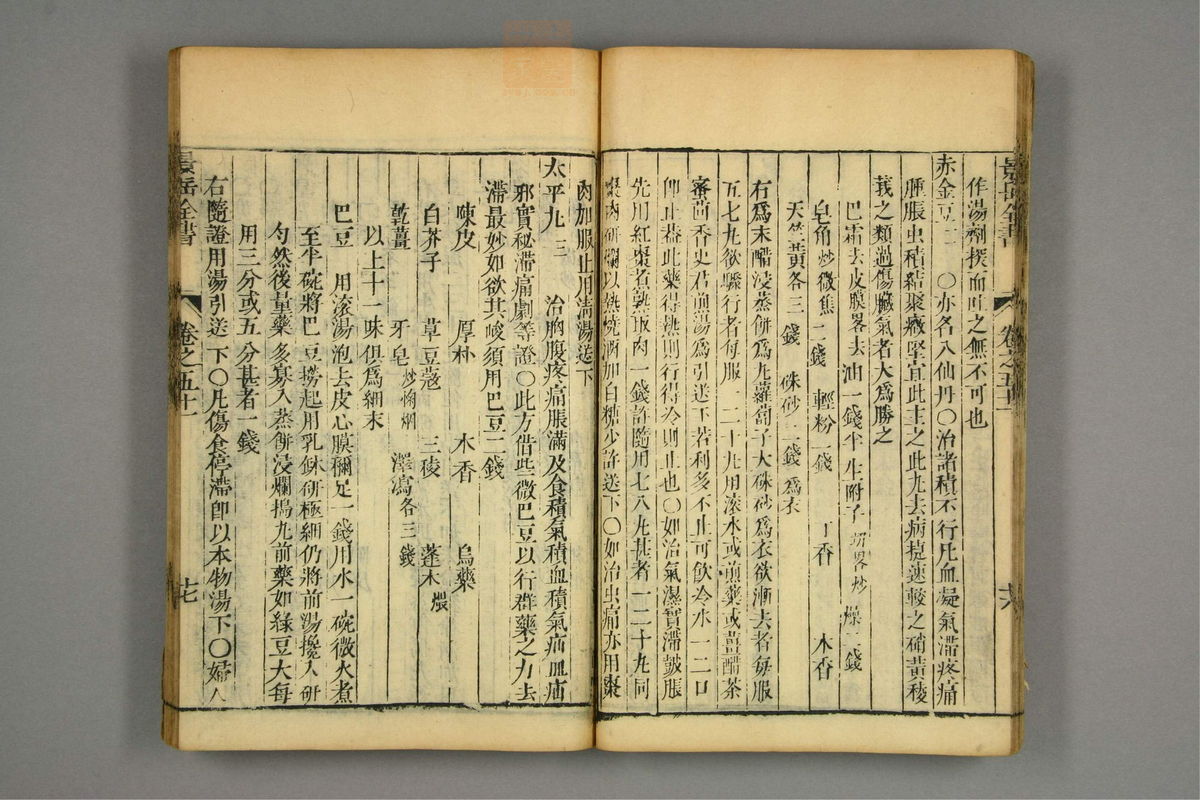 景岳全書 卷之五十一 六
作湯劑探而吐之無不可也
赤金豆二 〇亦名八仙丹〇治諸積不行凡血凝氣滯疼痛
腫脹虫積結聚癥堅宜此主之此丸去病㨗速較之硝黃稜
莪之類過傷臟氣者大爲勝之
巴霜去皮膜畧去油一錢半 生附子切畧炒燥二錢
皂角炒微焦二錢 輕粉一錢 丁香 木香
天竺黃各三錢 硃砂二錢爲衣
右爲末醋浸蒸餅爲丸蘿蔔子大硃砂爲衣欲漸去者每服
五七丸欲驟行者每服一二十丸用滾水或煎藥或薑醋茶
蜜茴香史君煎湯爲引送下若利多不止可飲冷水一二口
卽止葢此藥得熱則行得冷則止也〇如治氣濕實滯皷脹
先用紅棗煮熟取肉一錢許隨用七八丸甚者一二十丸同
棗肉研爛以熱燒酒加白糖少許送下〇如治虫痛亦用棗
肉加服止用清湯送下
太平丸三 治胸腹疼痛脹滿及食積氣積血積氣疝血疝
邪實秘滯痛劇等證〇此方借些微巴豆以行群藥之力去
滯最妙如欲其峻須用巴豆二錢
陳皮 厚朴 木香 烏藥
白芥子 草豆蔻 三稜 蓬朮煨
乾薑 牙皂炒惱烟 澤瀉各三錢
以上十一味俱爲細末
巴豆 用滾湯泡去皮心膜稱足一錢用水一碗微火煮
至半碗將巴豆撈起用乳鉢研極細仍將前湯攙入研
勻然後量藥多寡入蒸餅浸爛搗丸前藥如綠豆大每
用三分或五分甚者一錢
右隨證用湯引送下〇凡傷食停滯卽以本物湯下〇婦人
景岳全書 卷之五十一 七